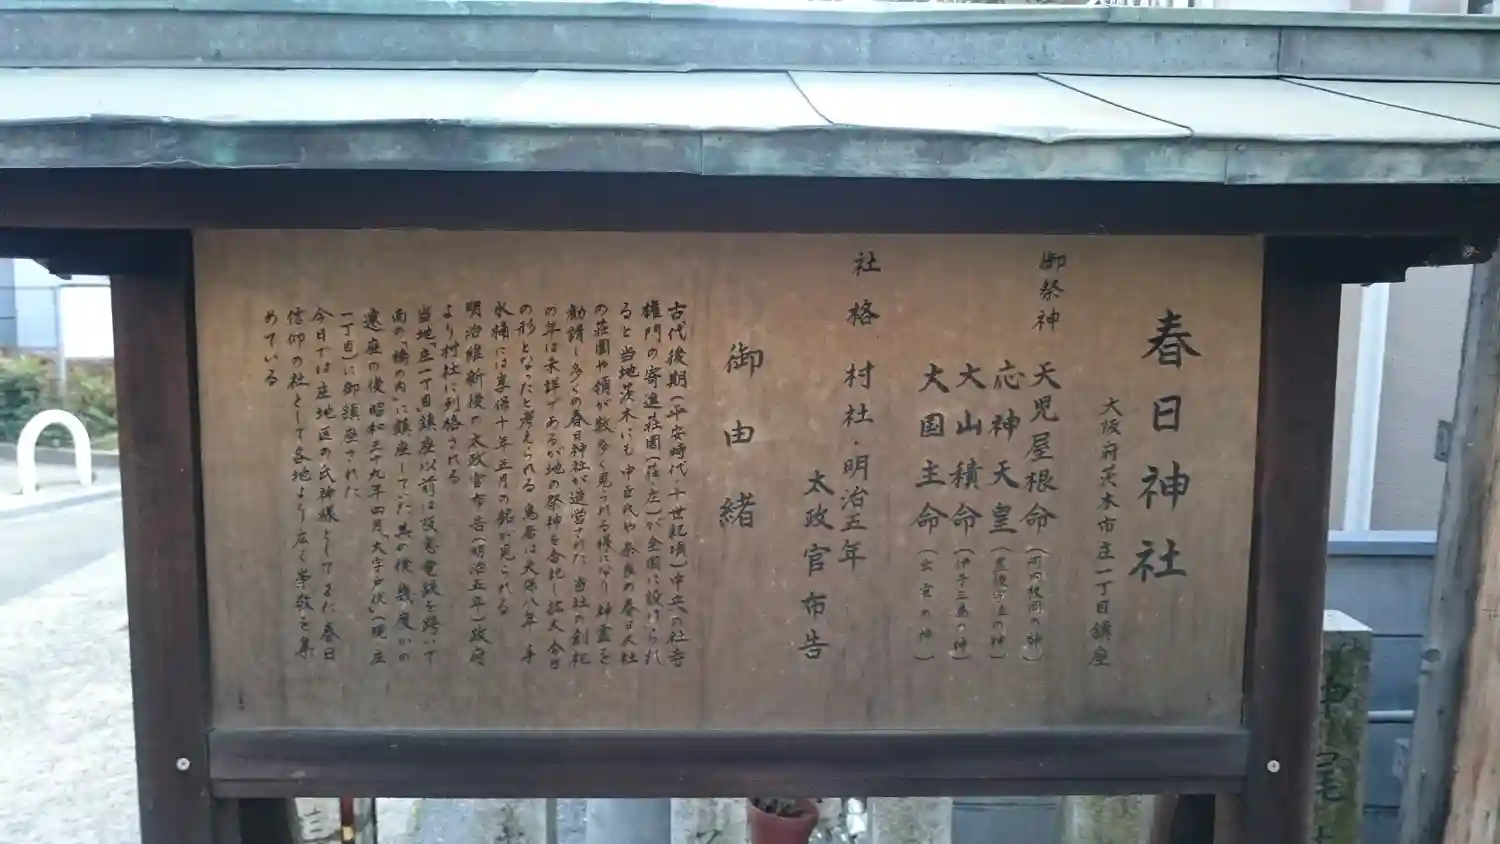 春日神社
大阪府茨木市庄一丁目鎮座
御祭神 天児屋根命(河内枚岡の神)
応神天皇(豊後宇佐の神)
大山積命(伊予三島の神)
大国主命(出雲の神)
社格 村社・明治五年
太政官布告
御由緒
古代後期(平安時代・十世紀頃)中央の社寺
権門の寄進荘園(荘、庄)が全国に設けられ
ると当地茨木にも中臣氏や奈良の春日大社
の荘園や領が数多く見られる様になり御霊を
勧請し多くの春日神社が造営された 当社の創祀
の年は未詳であるが他の祭神を合祀し拡大今日
の形となったと考えられる 鳥居は天保八年 手
水桶には享保十年五月の銘が見られる
明治維新後の太政官布告(明治五年)政府
より村社に列格される
当地「庄一丁目」鎮座以前は阪急電鉄を跨いで
南の「橋の内」に鎮座していた 其の後幾度かの
遷座の後昭和三十九年四月「大字戸伏」(現庄
一丁目)に御鎮座された
今日では庄地区の氏神様としてまた春日
信仰の社として各地より広く崇敬を集
めている